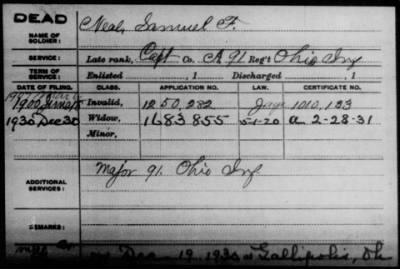 DEAD
NAME OF SOLDIER: Neal, Samuel F.
SERVICE: Late rank, Capt Co. A 91 Reg't Ohio Inf
TERM OF SERVICE: Enlisted , 1 Discharged , 1
DATE OF FILING. CLASS. APPLICATION NO. LAW. CERTIFICATE NO.
1900 Invalid, 1250,282 1010,133
1930 Dec 30 Widow, 1683855 5-1-20 a 2-28-31
Minor,
ADDITIONAL SERVICES: Major 91. Ohio Inf
REMARKS:
Dec 19, 1930 at Gallipolis, Oh